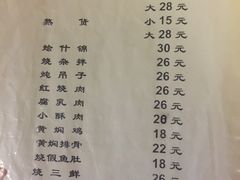 大 28 元
熟 货 小 15 元
大 28 元
烩什锦 30 元
烧杂拌 26 元
炖吊子 26 元
红烧肉 26 元
腐乳肉 26 元
小酥肉 20 元
黄焖鸡 18 元
黄焖排骨 22 元
烧假鱼肚 18 元
烧三鲜 26 元